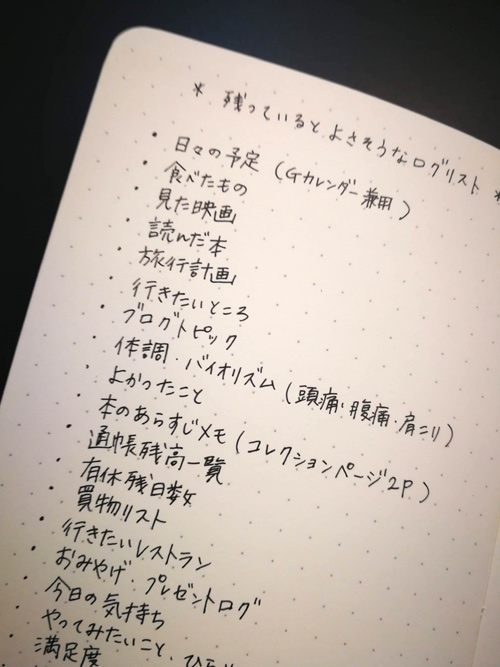 * 残っているとよさそうなログリスト *
・日々の予定 (Gカレンダー兼用)
・食べたもの
・見た映画
・読んだ本
・旅行計画
・行きたいところ
・ブログトピック
・体調・バイオリズム (頭痛・腹痛・肩こり)
・よかったこと
・本のあらすじメモ (コレクションページ2P)
・通帳残高一覧
・有休残日数
・買物リスト
・行きたいレストラン
・おみやげ・プレゼントログ
・今日の気持ち
・やってみたいこと・
・満足度